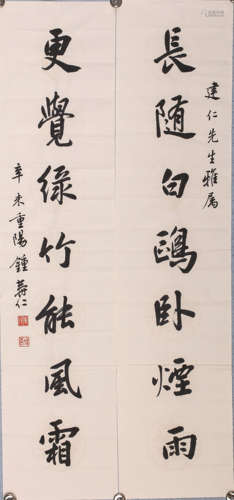 建仁先生雅属
長随白鷗卧煙雨
更覺緑竹能風霜
辛未重陽鍾壽仁